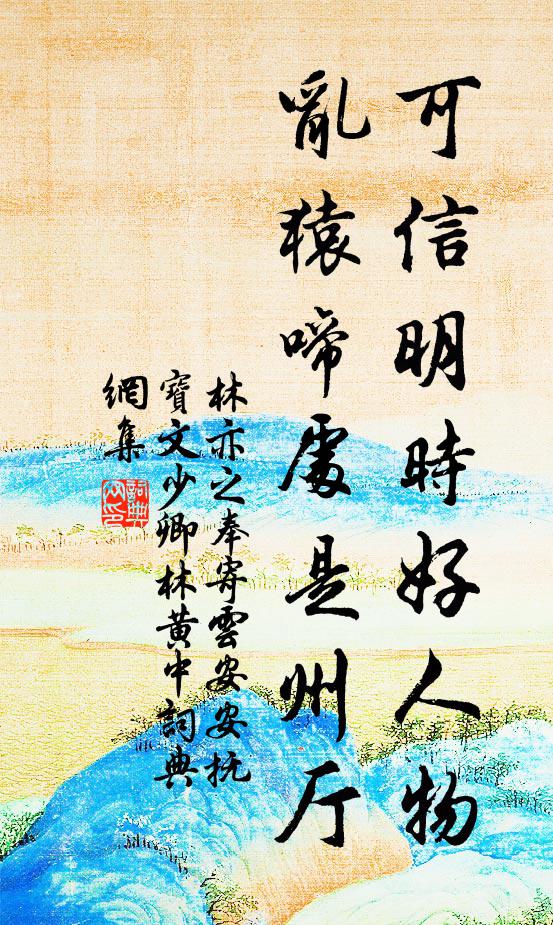 可信明時好人物
亂猿啼處是州厅
林亦之奉寄雲安安抚
寶文少卿林黄中詞典
網集